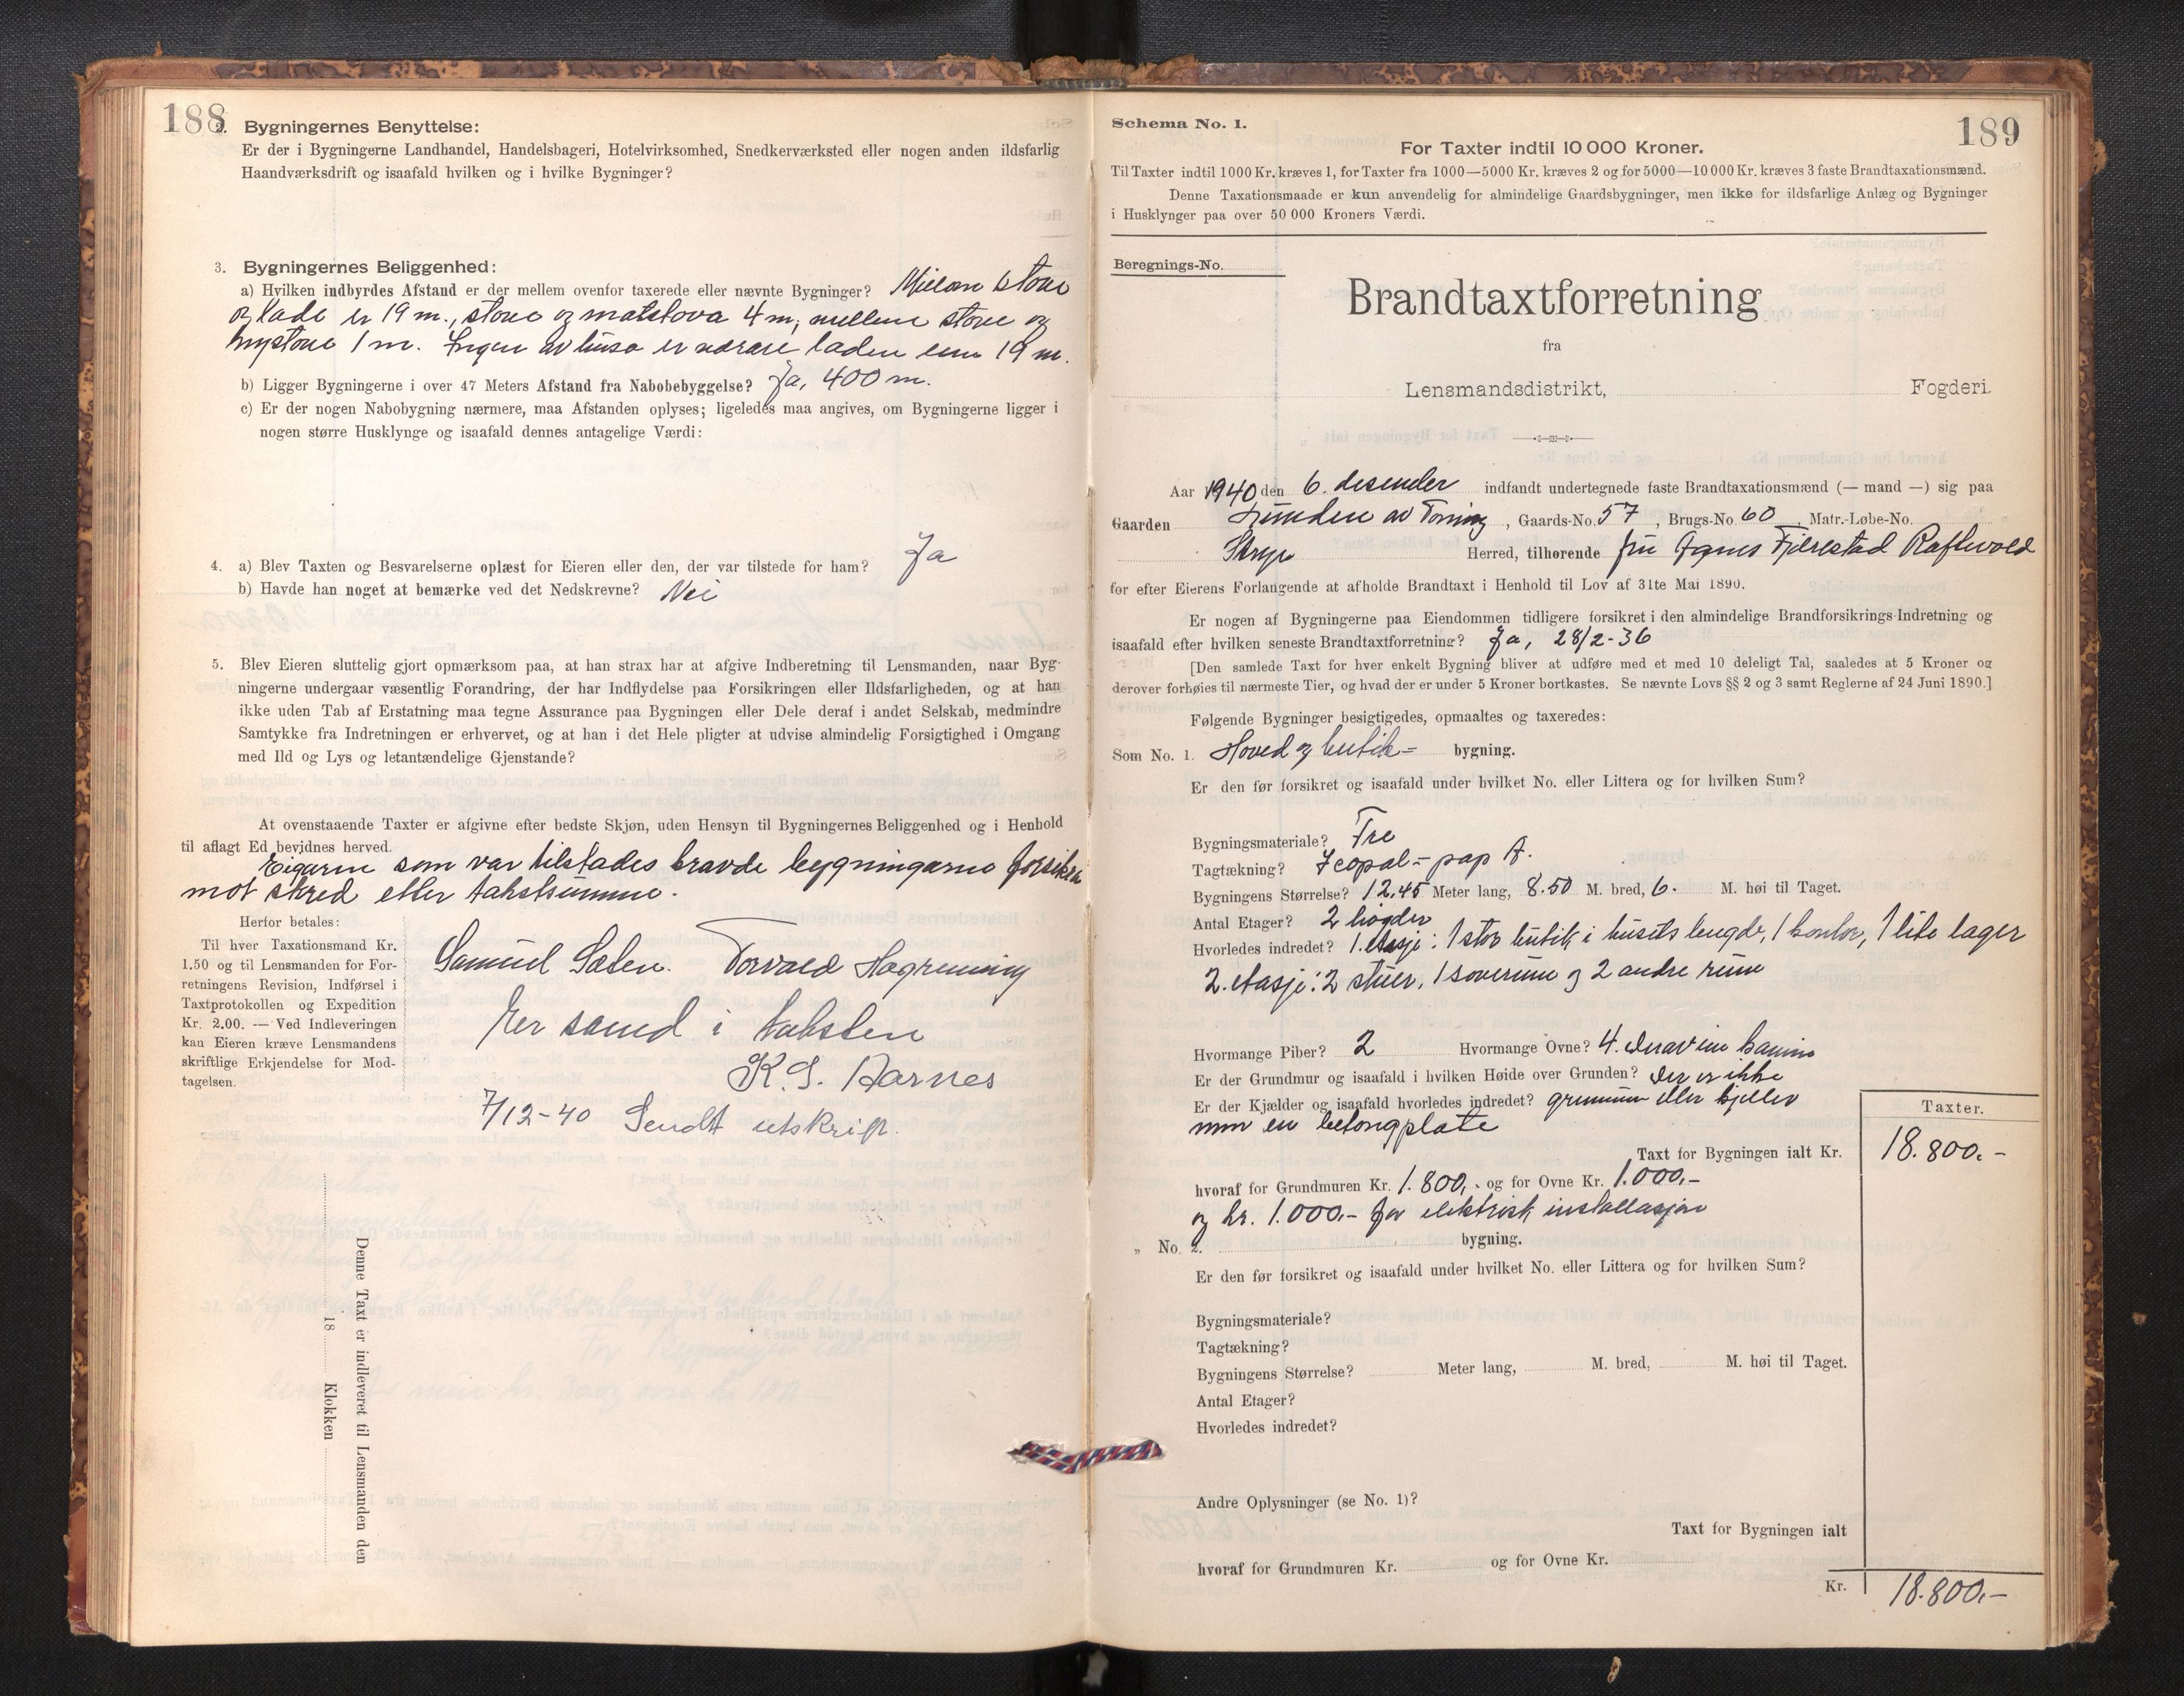 188
2. Bygningernes Benyttelse:
Er der i Bygningerne Landhandel, Handelsbageri, Hotelvirksomhed, Snedkerværksted eller nogen anden ildsfarlig
Haandværksdrift og isaafald hvilken og i hvilke Bygninger?
3. Bygningernes Beliggenhed:
a) Hvilken indbyrdes Afstand er der mellem ovenfor taxerede eller nævnte Bygninger? Millom stove
og lade er 19 m., stove og matstova 4 m, mellom stove og
nystove 1 m. Ingen av husa er nærare laden enn 19 m.
b) Ligger Bygningerne i over 47 Meters Afstand fra Nabobebyggelse? Ja, 400 m.
c) Er der nogen Nabobygning nærmere, maa Afstanden oplyses; ligeledes maa angives, om Bygningerne ligger i
nogen større Husklynge og isaafald dennes antagelige Værdi:
4. a) Blev Taxten og Besvarelserne oplæst for Eieren eller den, der var tilstede for ham? Ja
b) Havde han noget at bemærke ved det Nedskrevne? Nei
5. Blev Eieren sluttelig gjort opmærksom paa, at han strax har at afgive Indberetning til Lensmanden, naar Byg-
ningerne undergaar væsentlig Forandring, der har Indflydelse paa Forsikringen eller Ildsfarligheden, og at han
ikke uden Tab af Erstatning maa tegne Assurance paa Bygningen eller Dele deraf i andet Selskab, medmindre
Samtykke fra Indretningen er erhvervet, og at han i det Hele pligter at udvise almindelig Forsigtighed i Omgang
med Ild og Lys og letantændelige Gjenstande?
At ovenstaaende Taxter er afgivne efter bedste Skjøn, uden Hensyn til Bygningernes Beliggenhed og i Henhold
til aflagt Ed bevidnes herved.
Eigaren som var tilstades kravde bygningarne forsikra
mot skred etter takstsumme.
Herfor betales:
Til hver Taxationsmand Kr.
1.50 og til Lensmanden for For-
retningens Revision, Indførsel i
Taxtprotokollen og Expedition
Kr. 2.00. — Ved Indleveringen
kan Eieren kræve Lensmandens
skriftlige Erkjendelse for Mod-
tagelsen.
Samuel Sæten. Torvald Hagrenning
Er samd i taksten
K. S. Aarnes
7/12-40 Sendt utskrift.
Denne Taxt er indleveret til Lensmanden den
18 Klokken
189
Schema No. 1.
For Taxter indtil 10 000 Kroner.
Til Taxter indtil 1000 Kr. kræves 1, for Taxter fra 1000—5000 Kr. kræves 2 og for 5000—10 000 Kr. kræves 3 faste Brandtaxationsmænd.
Denne Taxationsmaade er kun anvendelig for almindelige Gaardsbygninger, men ikke for ildsfarlige Anlæg og Bygninger
i Husklynger paa over 50 000 Kroners Værdi.
Beregnings-No.
Brandtaxtforretning
fra
Lensmandsdistrikt, Fogderi.
Aar 1940 den 6. desember indfandt undertegnede faste Brandtaxationsmænd (— mand —) sig paa
Gaarden Lunden av Tonning, Gaards-No. 57, Brugs-No 60, Matr.-Løbe-No.
Stryn Herred, tilhørende fru Agnes Fjelestad Raftevold
for efter Eierens Forlangende at afholde Brandtaxt i Henhold til Lov af 31te Mai 1890.
Er nogen af Bygningerne paa Eiendommen tidligere forsikret i den almindelige Brandforsikrings-Indretning og
isaafald efter hvilken seneste Brandtaxtforretning? Ja, 28/2-36
[Den samlede Taxt for hver enkelt Bygning bliver at udføre med et med 10 deleligt Tal, saaledes at 5 Kroner og
derover forhøies til nærmeste Tier, og hvad der er under 5 Kroner bortkastes. Se nævnte Lovs §§ 2 og 3 samt Reglerne af 24 Juni 1890.]
Følgende Bygninger besigtigedes, opmaaltes og taxeredes:
Som No. 1. Hoved og butik- bygning.
Er den før forsikret og isaafald under hvilket No. eller Littera og for hvilken Sum?
Bygningsmateriale? Tre
Tagtækning? Icopal-pap A.
Bygningens Størrelse? 12.45 Meter lang, 8.50 M. bred, 6. M. høi til Taget.
Antal Etager? 2 høgder
Hvorledes indredet? 1. etasje: 1 stor butik i husets lengde, 1 kontor, 1 lite lager
2. etasje: 2 stuer, 1 soverum og 2 andre rum
Hvormange Piber? 2 Hvormange Ovne? 4. derav ein kamin
Er der Grundmur og isaafald i hvilken Høide over Grunden? Der er ikke
Er der Kjælder og isaafald hvorledes indredet? grunnmur eller kjeller
men en betongplate
Taxter.
Taxt for Bygningen ialt Kr. 18.800.-
hvoraf for Grundmuren Kr. 1.800,- og for Ovne Kr. 1.000,-
og kr. 1.000,- for elektrisk installasjon
„ No. 2. bygning.
Er den før forsikret og isaafald under hvilket No. eller Littera og for hvilken Sum?
Bygningsmateriale?
Tagtækning?
Bygningens Størrelse? Meter lang, M. bred, M. høi til Taget.
Antal Etager?
Hvorledes indredet?
Andre Oplysninger (se No. 1)?
Taxt for Bygningen ialt
hvoraf for Grundmuren Kr. og for Ovne Kr.
Kr. 18.800,-